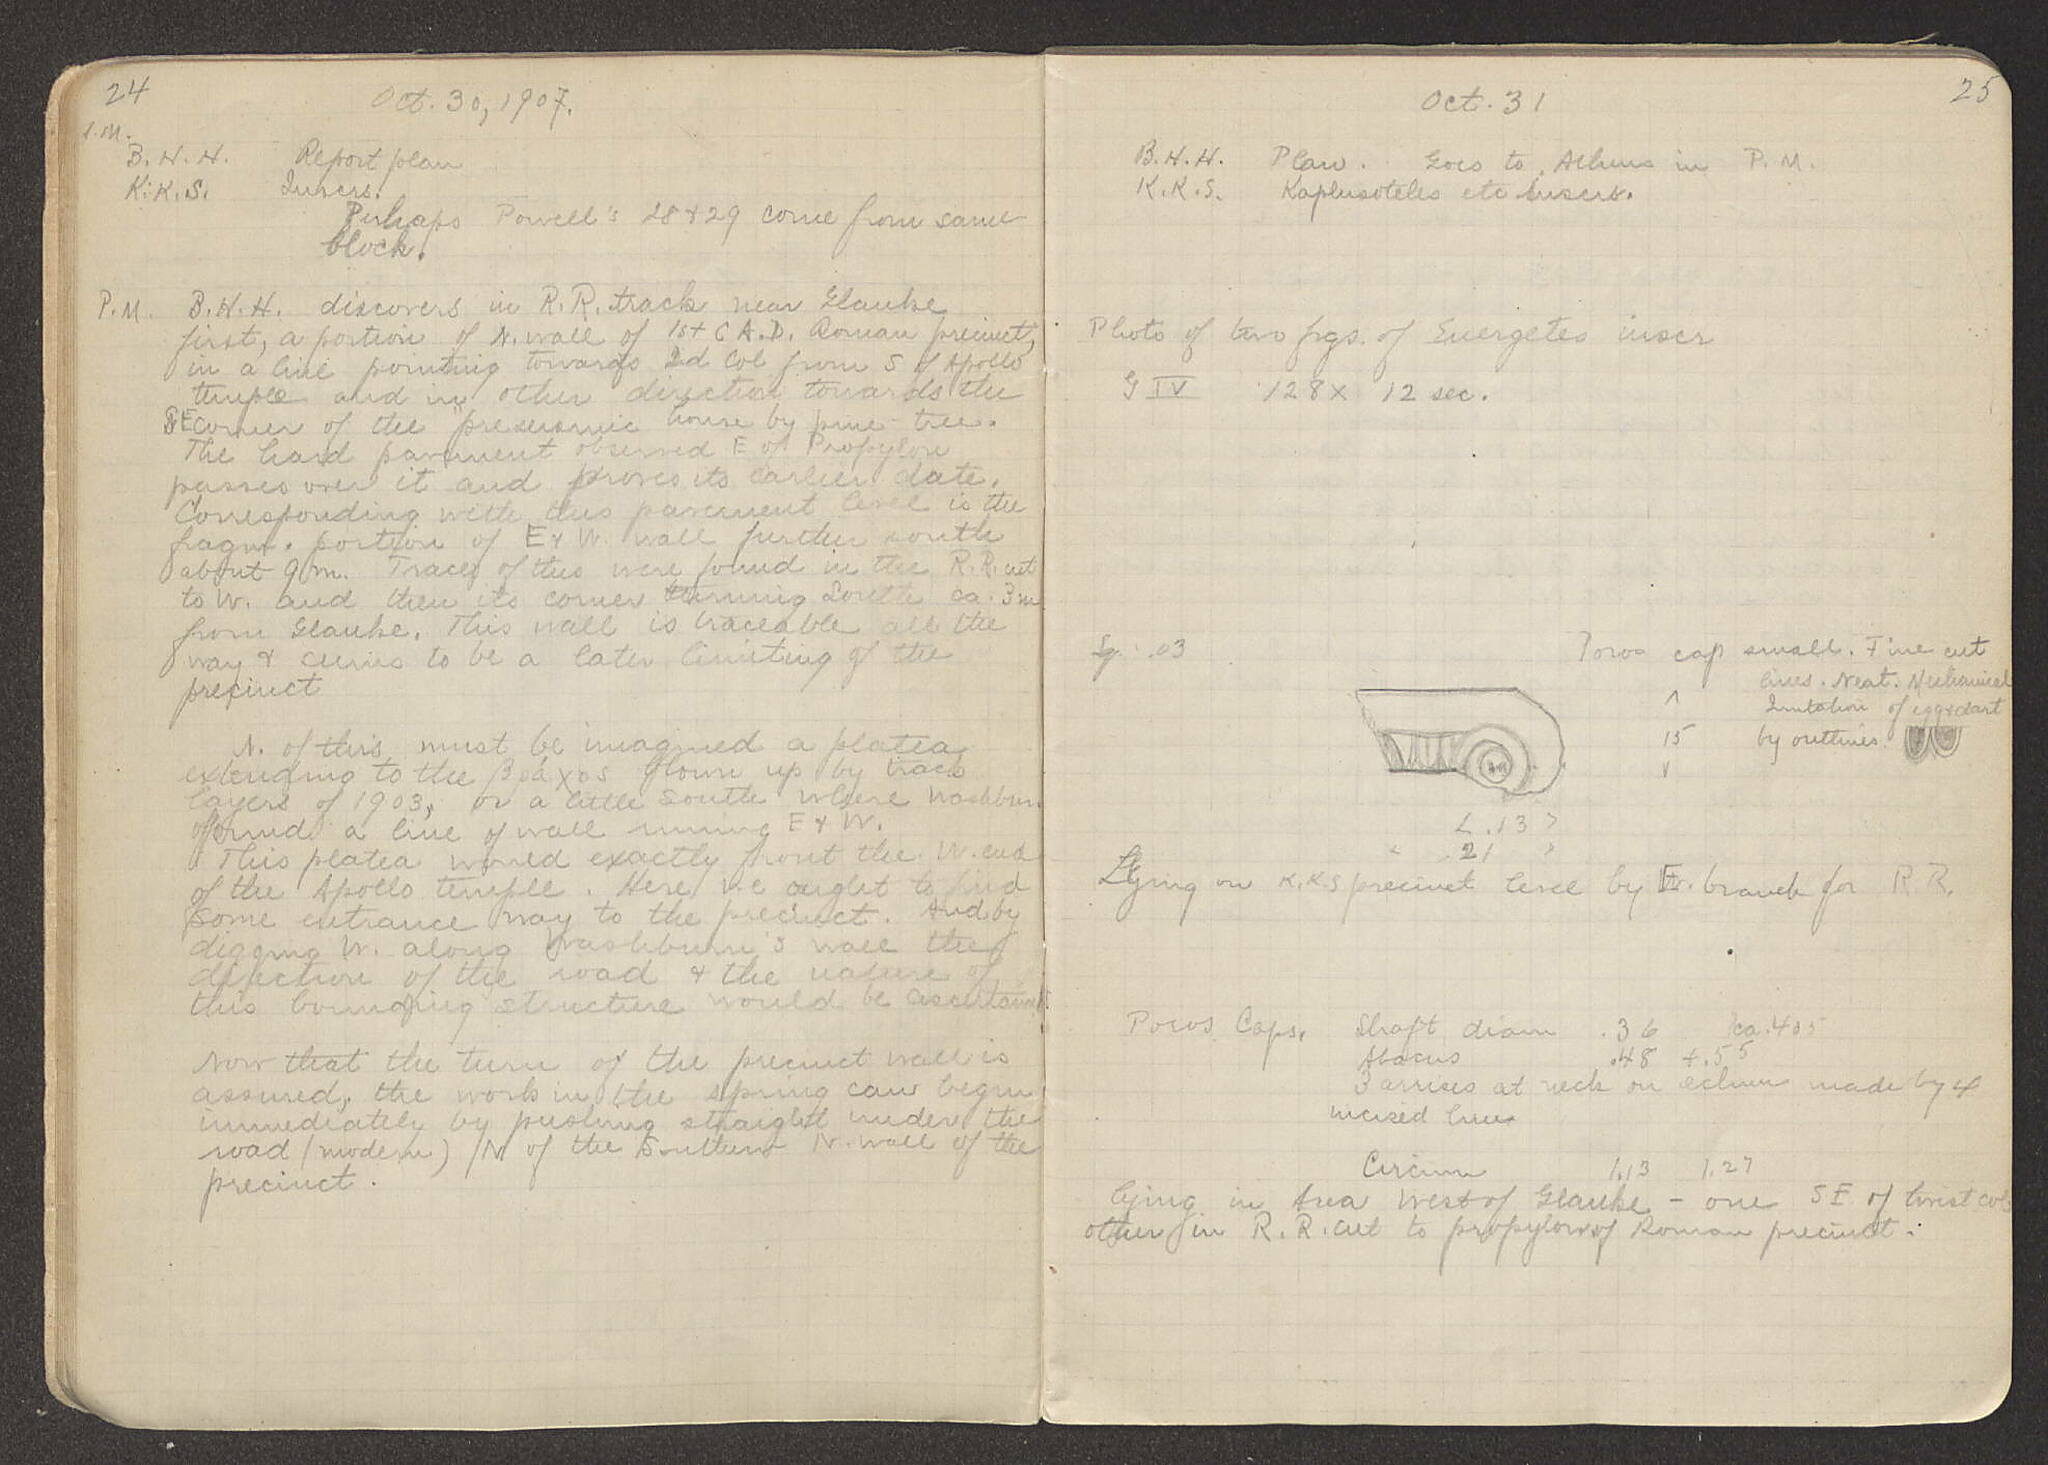 24
Oct. 30, 1907.
B. H. H. Report plan
K. K. S. Inscrs.
Perhaps Powell's 28 & 29 come from same
block.
P.M. B.H.H. discovers in R.R. track near Glauke
first, a portion of N. wall of 1st C A.D. Roman precinct,
in a line pointing towards 2d Col from S of Apollo
temple and in other direction towards the
SE corner of the "preseismic house by pine tree.
The hard pavement observed E of Propylon
passes over it and proves its earlier date.
Corresponding with this pavement level is the
fragm. portion of E & W. wall further south
about 9 m. Traces of this were found in the R.R. cut
to W. and then its corner turning South ca. 3 m
from Glauke. This wall is traceable all the
way & seems to be a later limiting of the
precinct
N. of this must be imagined a platea
extending to the βράχος blown up by track
layers of 1903, or a little south where Washburn
found a line of wall running E & W.
This platea would exactly front the W. end
of the Apollo temple. Here we ought to find
some entrance way to the precinct. And by
digging W. along Washburn's wall the
direction of the road & the nature of
this bounding structure would be ascertained
Now that the turn of the precinct wall is
assured, the work in the spring can begin
immediately by pushing straight under the
road (modern) N of the Southern N. wall of the
precinct.
25
Oct. 31
B.H.H. Plan. Goes to Athens in P.M.
K.K.S. etc inscrs.
Photo of two frgs. of Euergetes inscr
G IV 128 x 12 sec.
.03
Poros cap small. Fine cut
lines. Neat. Mechanical
Imitation of egg & dart
15 by outlines.
L .13 >
" .21 "
Lying on K.K.S precinct level by W. branch for R.R.
Poros Caps. Shaft diam .36 ca. .405
Abacus .48 + .55
3 arrises at neck on echinus made by 4
incised lines
Circum 1.13 1.27
lying in Area West of Glauke - one SE of twist col
other in R.R. cut to propylon of Roman precinct.